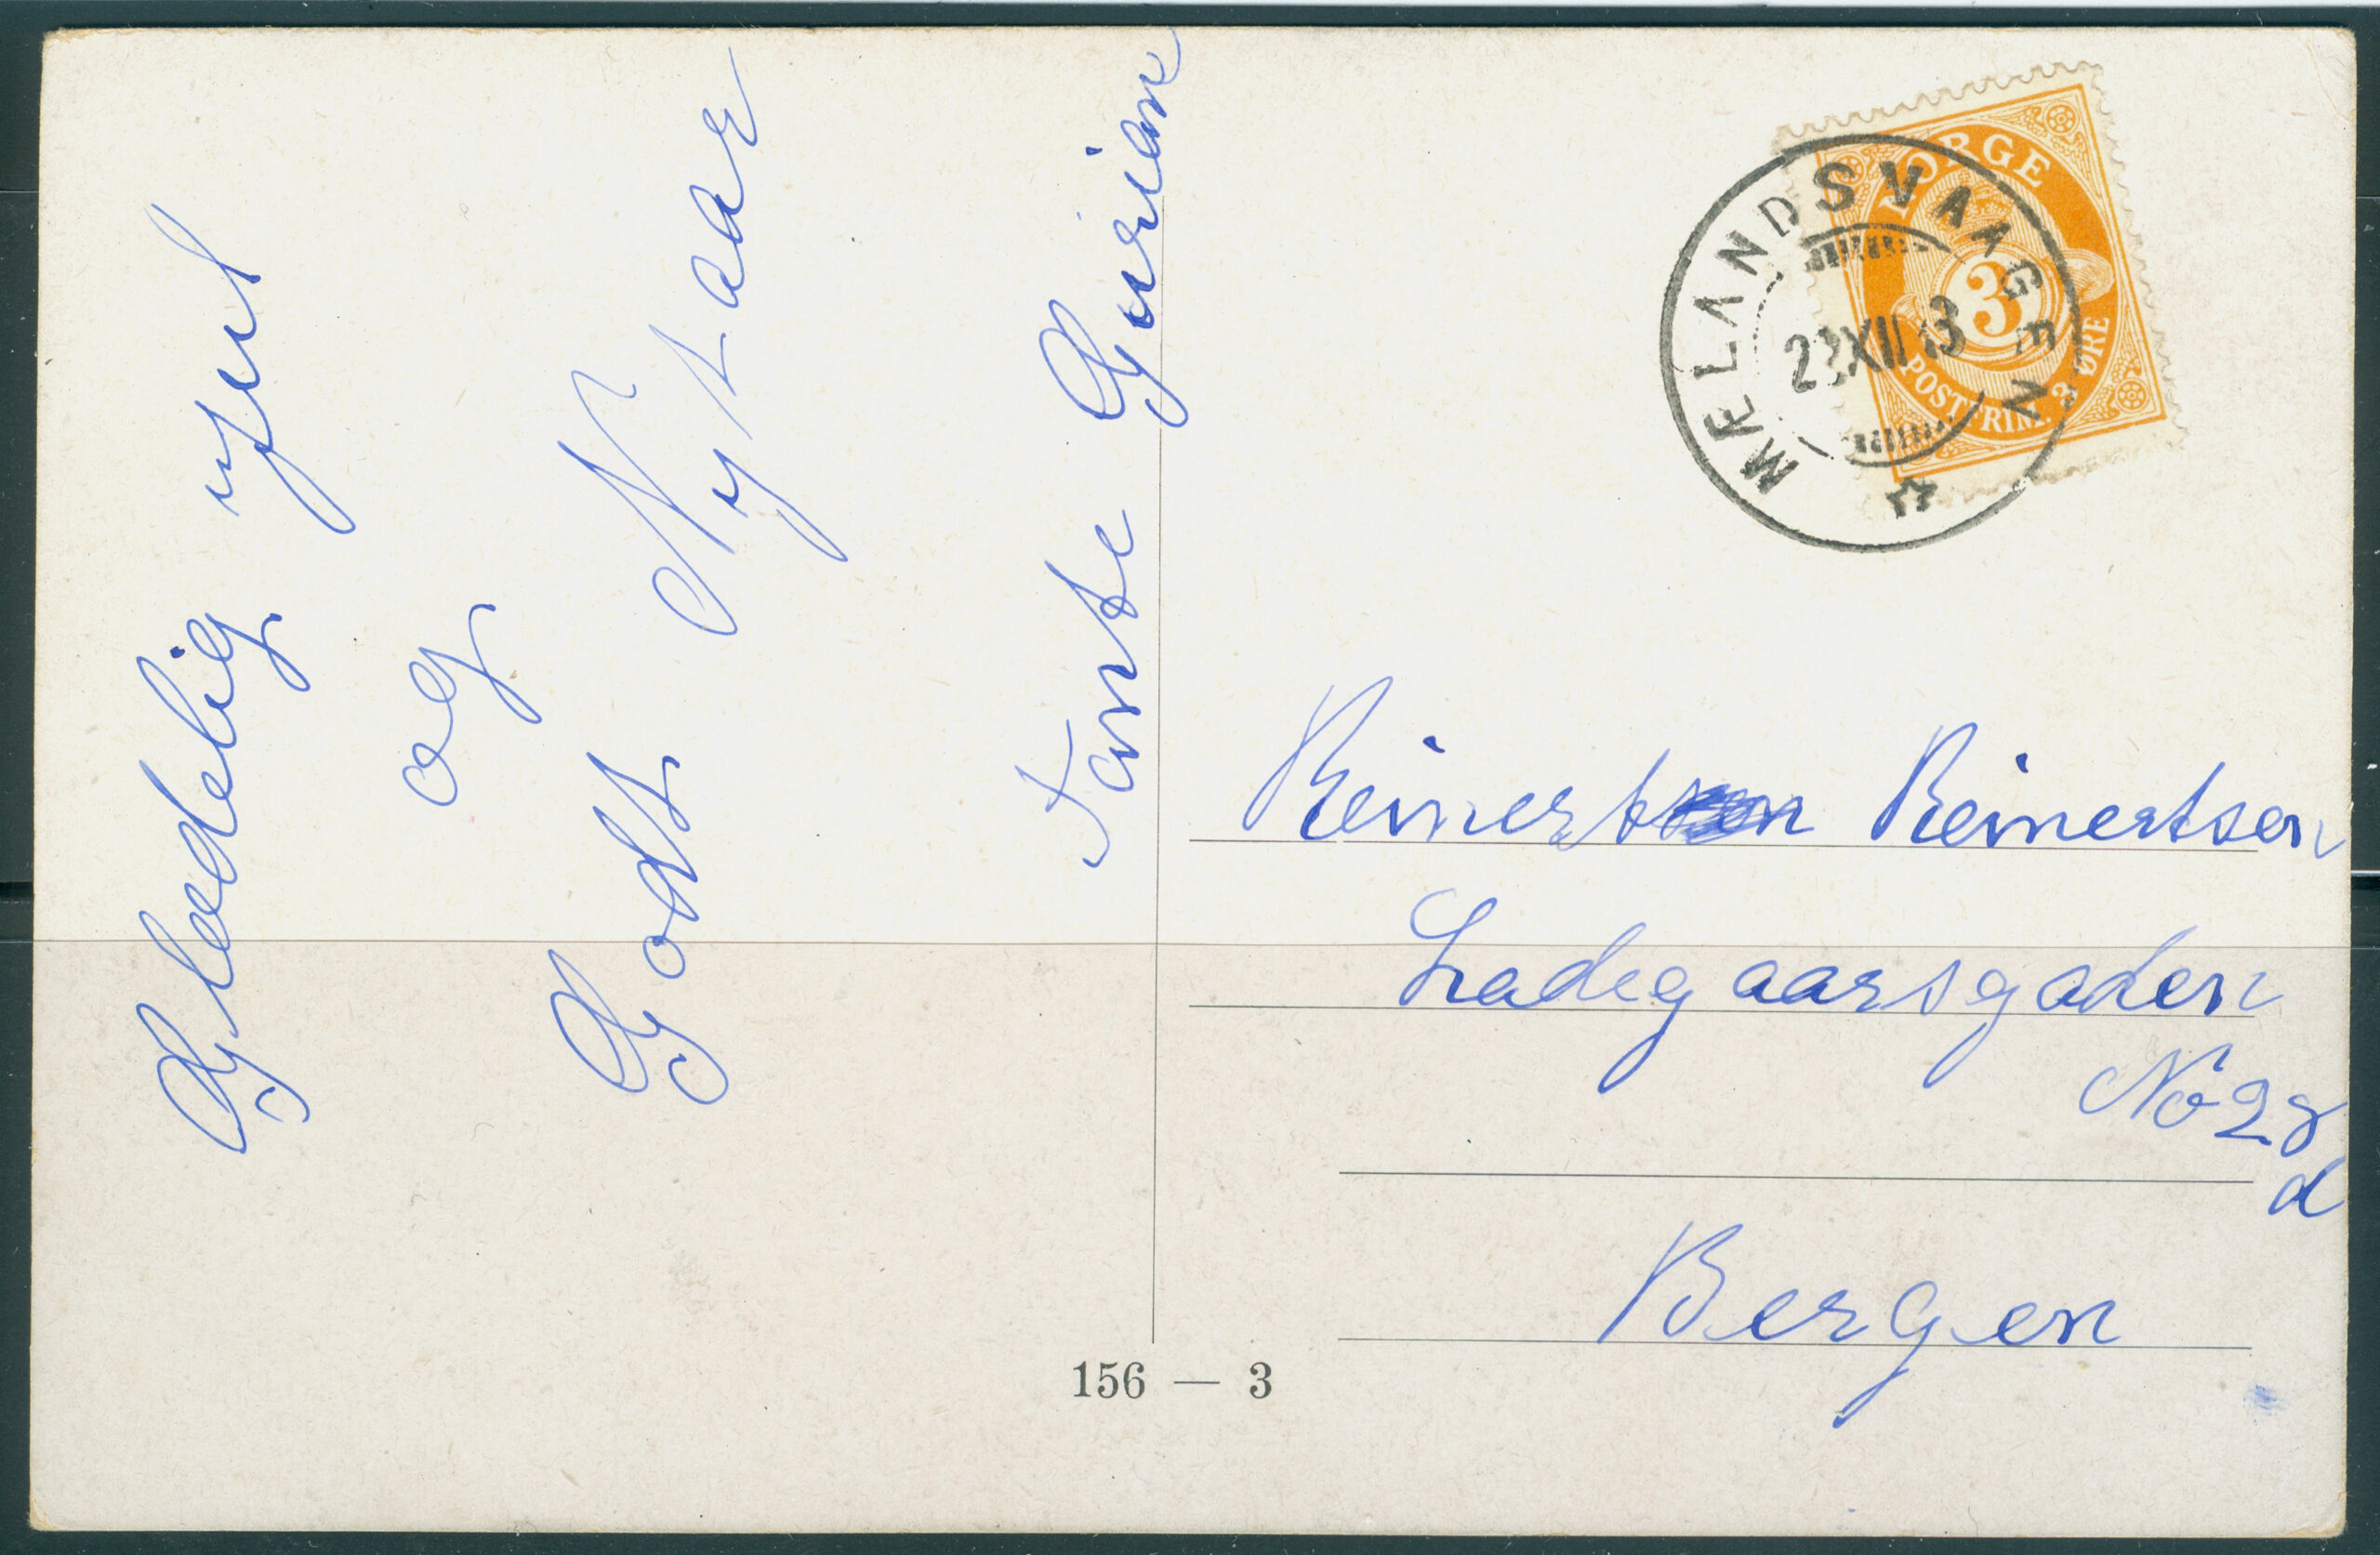 Glædelig jul
og
Godt Nyt aar
Tante Gurian
NORGE
3
POSTFRIM. 3 ØRE
MÆLANDSVAAGEN
XII 13
Reinert Reinertsen
Ladegaarsgaden
No 28
d
Bergen
156 — 3